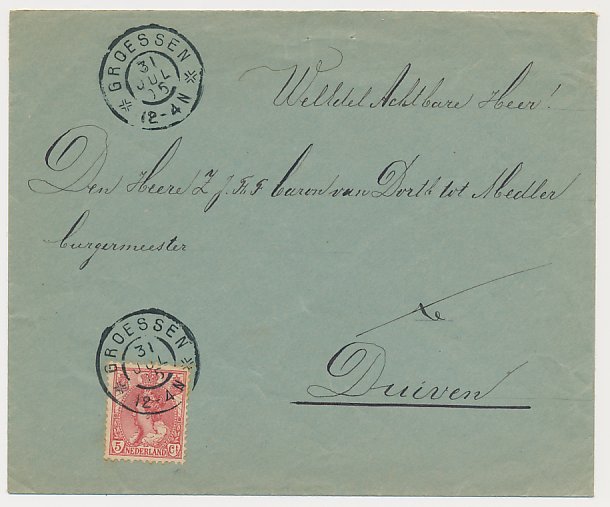 GROESSEN
31
JUL
05
12-4N
WelEdel Achtbare Heer!
Den Heere Z. J. Th. F. baron van Dorth tot Medler
burgermeester
te
Duiven
GROESSEN
31
JUL
05
12-4N
5 NEDERLAND Ct